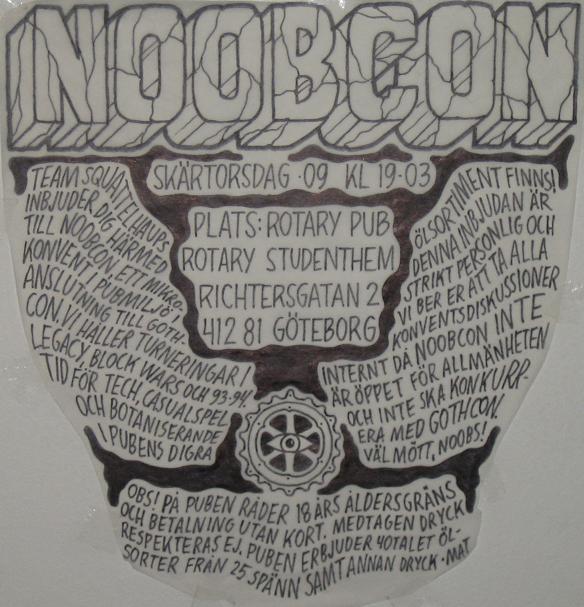 NOOBCON
SKÄRTORSDAG ·09 KL 19-03
PLATS: ROTARY PUB
ROTARY STUDENTHEM
RICHTERSGATAN 2
412 81 GÖTEBORG
TEAM SQUATTELHAUPS
INBJUDER DIG HÄRMED
TILL NOOBCON, ETT MIKRO-
KONVENT I PUBMILJÖ I
ANSLUTNING TILL GOTH-
CON. VI HÅLLER TURNERINGAR I
LEGACY, BLOCK WARS OCH 93-94.
TID FÖR TECH, CASUALSPEL
OCH BOTANISERANDE
I PUBENS DIGRA
ÖLSORTIMENT FINNS!
DENNA INBJUDAN ÄR
STRIKT PERSONLIG OCH
VI BER ER ATT TA ALLA
KONVENTSDISKUSSIONER
INTERNT DÅ NOOBCON INTE
ÄR ÖPPET FÖR ALLMÄNHETEN
OCH INTE SKA KONKURR-
ERA MED GOTHCON.
VÄL MÖTT, NOOBS!
OBS! PÅ PUBEN RÅDER 18 ÅRS ÅLDERSGRÄNS
OCH BETALNING UTAN KORT. MEDTAGEN DRYCK
RESPEKTERAS EJ. PUBEN ERBJUDER 40TALET ÖL-
SORTER FRÅN 25 SPÄNN SAMT ANNAN DRYCK · MAT